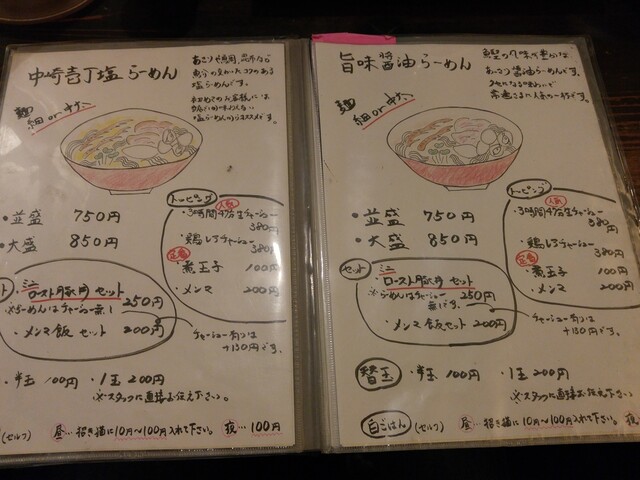 中崎壱丁塩らーめん
あさりや鶏肉、昆布など
魚介の
塩らーめんです。
塩らーめんがオススメです。
麺 細or中太
・並盛 750円
・大盛 850円
トッピング
人気
・3時間47分生チャーシュー
380円
・鶏レアチャーシュー
380円
定番
・煮玉子 100円
・メンマ 200円
ミニ
ロースト豚丼 セット
250円
※らーめんはチャーシュー無し
・メンマ飯 セット 200円
チャーシュー有つは
+130円です。
・半玉 100円 ・1玉 200円
※スタッフに直接お伝え下さい。
(セルフ) 昼…招き猫に10円〜100円入れて下さい。 夜…100円
旨味醤油らーめん
あっさり醤油らーめんです。
麺 細or中太
・並盛 750円
・大盛 850円
トッピング
人気
・3時間47分生チャーシュー
380円
・鶏レアチャーシュー
380円
定番
・煮玉子 100円
・メンマ 200円
セット
・ミニ
ロースト豚丼 セット
※らーめんはチャーシュー 250円
無しです。
・メンマ飯セット 200円
チャーシュー有つは
+130円です。
替玉 ・半玉 100円 ・1玉 200円
※スタッフに直接お伝え下さい。
白ごはん (セルフ) 昼…招き猫に10円〜100円入れて下さい。 夜…100円